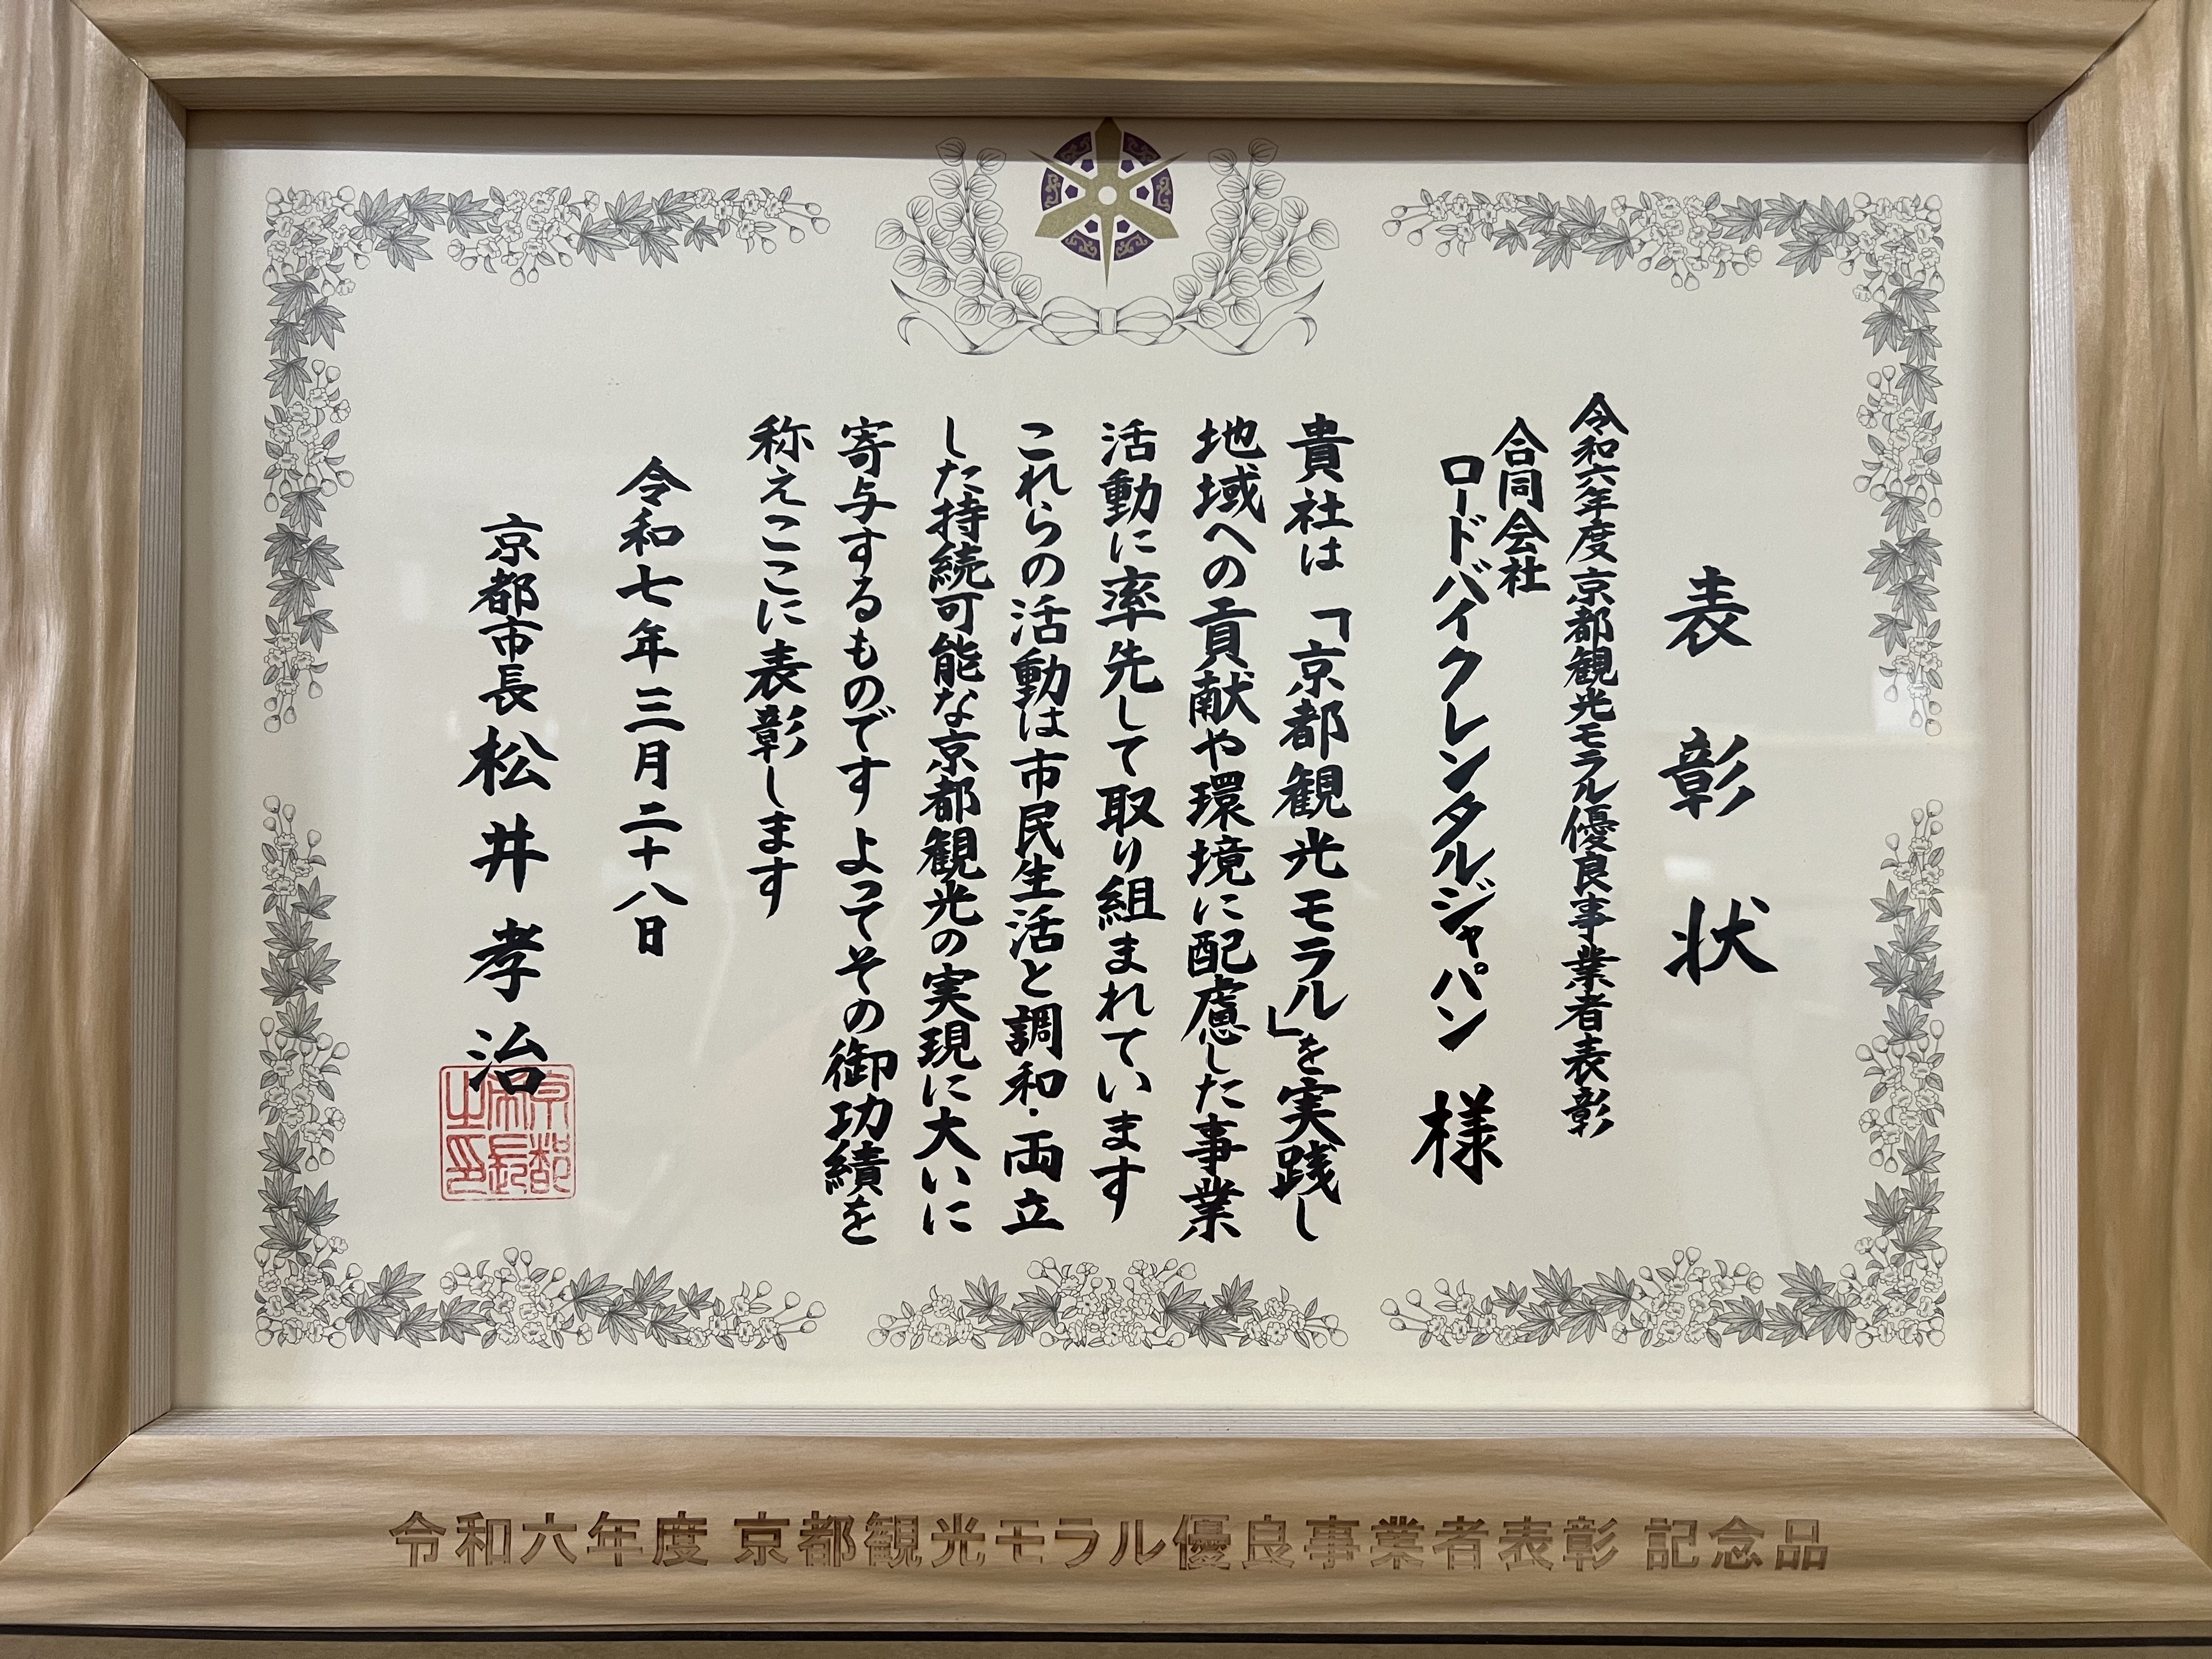 表彰状
令和六年度 京都観光モラル優良事業者表彰
合同会社
ロードバイクレンタルジャパン 様
貴社は「京都観光モラル」を実践し
地域への貢献や環境に配慮した事業
活動に率先して取り組まれています
これらの活動は市民生活と調和・両立
した持続可能な京都観光の実現に大いに
寄与するものです よってその御功績を
称えここに表彰します
令和七年三月二十八日
京都市長 松井孝治
京都
市長
之印
令和六年度 京都観光モラル優良事業者表彰 記念品